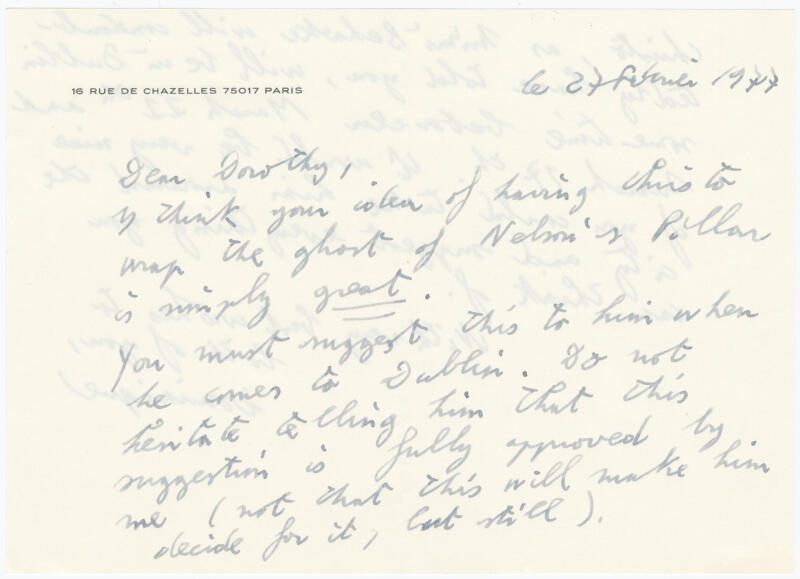 16 RUE DE CHAZELLES 75017 PARIS
le 27 février 1977
Dear Dorothy,
I think your idea of having Christo
wrap the ghost of Nelson's Pillar
is simply great.
You must suggest this to him when
he comes to Dublin. Do not
hesitate telling him that this
suggestion is fully approved by
me (not that this will make him
decide for it, but still).